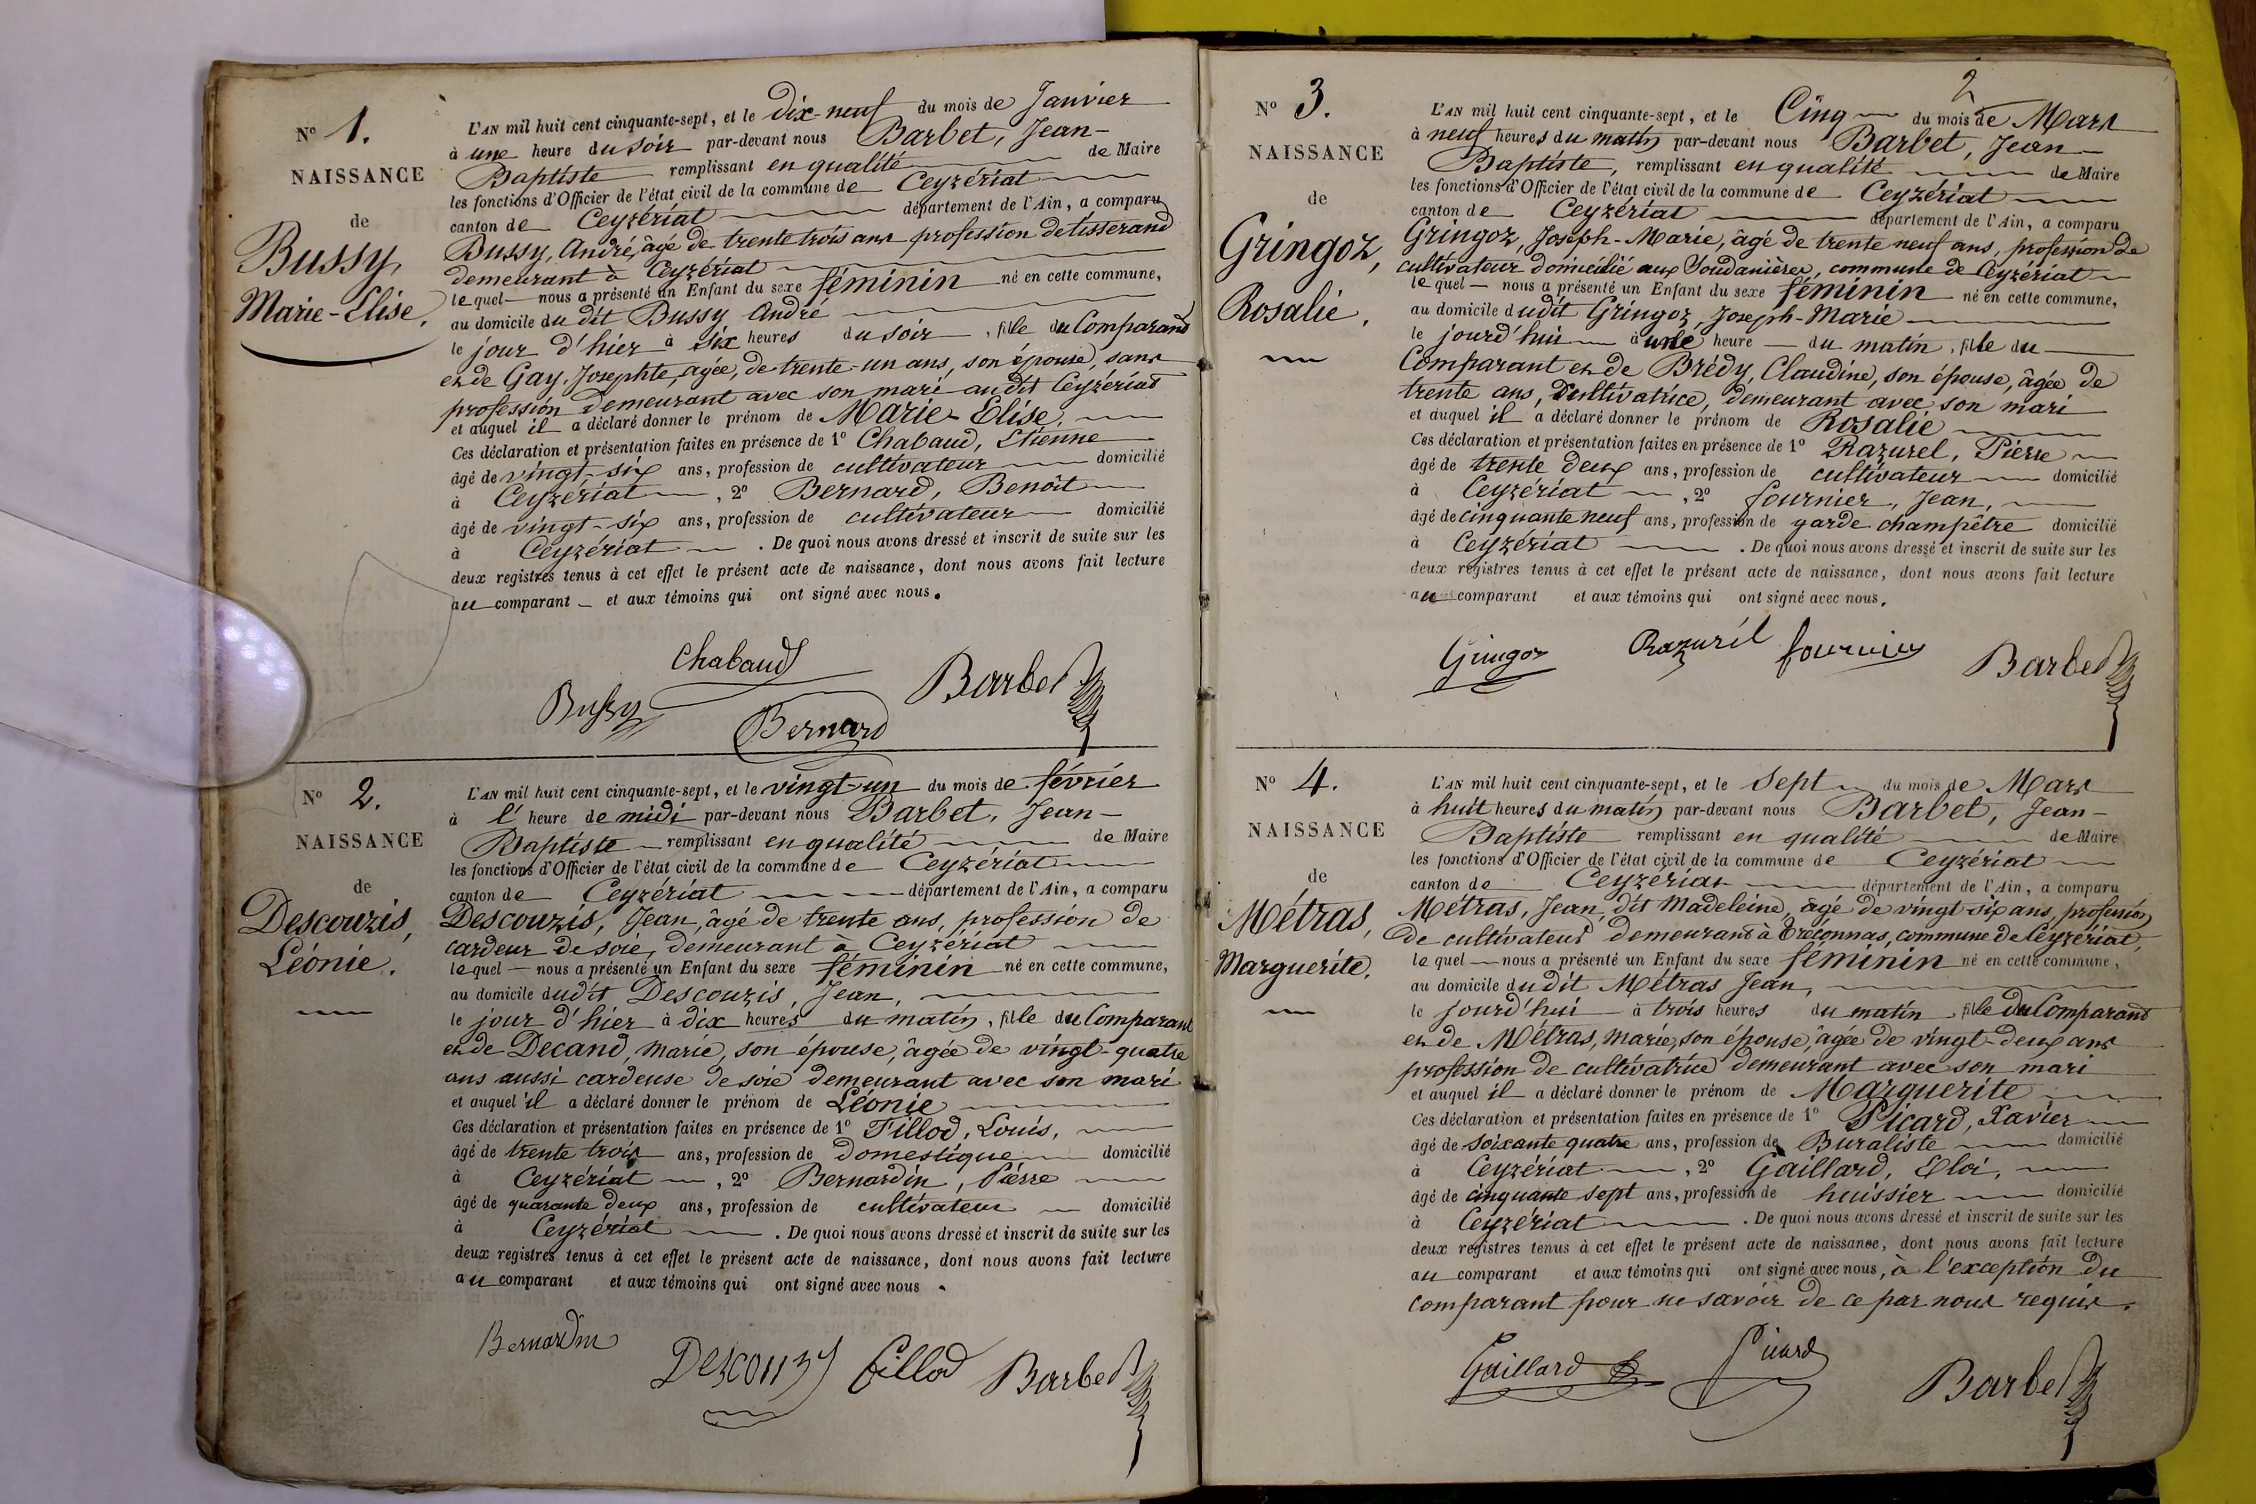 N° 1.
NAISSANCE
de
Bussy,
Marie-Elise.
L'AN mil huit cent cinquante-sept, et le Dix-neuf du mois de Janvier
à une heure du soir par-devant nous Barbet, Jean-
Baptiste remplissant en qualité de Maire
les fonctions d'Officier de l'état civil de la commune de Ceyzériat
canton de Ceyzériat département de l'Ain, a comparu
Bussy, André, âgé de trente trois ans profession de tisserand
demeurant à Ceyzériat
lequel nous a présenté un Enfant du sexe féminin né en cette commune,
au domicile du dit Bussy André
le jour d'hier à six heures du soir, fille du Comparant
et de Gay, Josephte, agée, de trente-un ans, son épouse, sans
profession demeurant avec son mari audit Ceyzériat
et auquel il a déclaré donner le prénom de Marie-Elise,
Ces déclaration et présentation faites en présence de 1° Chabaud, Etienne
âgé de vingt-six ans, profession de cultivateur domicilié
à Ceyzériat, 2° Bernard, Benoît
âgé de vingt-six ans, profession de cultivateur domicilié
à Ceyzériat. De quoi nous avons dressé et inscrit de suite sur les
deux registres tenus à cet effet le présent acte de naissance, dont nous avons fait lecture
au comparant et aux témoins qui ont signé avec nous.
Chabaud
Bussy Bernard Barbet
N° 2.
NAISSANCE
de
Descouzis,
Léonie.
L'AN mil huit cent cinquante-sept, et le vingt-un du mois de février
à l' heure de midi par-devant nous Barbet, Jean-
Baptiste remplissant en qualité de Maire
les fonctions d'Officier de l'état civil de la commune de Ceyzériat
canton de Ceyzériat département de l'Ain, a comparu
Descouzis, Jean, âgé de trente ans, profession de
cardeur de soie, demeurant à Ceyzériat
lequel nous a présenté un Enfant du sexe féminin né en cette commune,
au domicile dudit Descouzis, Jean,
le jour d'hier à dix heures du matin, fille du Comparant
et de Decand, Marie, son épouse, âgée de vingt-quatre
ans aussi cardeuse de soie demeurant avec son mari
et auquel il a déclaré donner le prénom de Léonie
Ces déclaration et présentation faites en présence de 1° Fillod, Louis,
âgé de trente trois ans, profession de Domestique domicilié
à Ceyzériat, 2° Bernardin, Pierre
âgé de quarante deux ans, profession de cultivateur domicilié
à Ceyzériat. De quoi nous avons dressé et inscrit de suite sur les
deux registres tenus à cet effet le présent acte de naissance, dont nous avons fait lecture
au comparant et aux témoins qui ont signé avec nous.
Bernardin Descouzy fillod Barbet
2
N° 3.
NAISSANCE
de
Gringoz,
Rosalie.
L'AN mil huit cent cinquante-sept, et le Cinq du mois de Mars
à neuf heures du matin par-devant nous Barbet, Jean-
Baptiste, remplissant en qualité de Maire
les fonctions d'Officier de l'état civil de la commune de Ceyzériat
canton de Ceyzériat département de l'Ain, a comparu
Gringoz, Joseph-Marie, âgé de trente neuf ans, profession de
cultivateur domicilié aux Soudanières, commune de Ceyzériat
lequel nous a présenté un Enfant du sexe féminin né en cette commune,
au domicile dudit Gringoz, Joseph-Marie
le jourd'hui à une heure du matin, fille du
Comparant et de Brédy, Claudine, son épouse, âgée de
trente ans, cultivatrice, demeurant avec son mari
et auquel il a déclaré donner le prénom de Rosalie
Ces déclaration et présentation faites en présence de 1° Razurel, Pierre
âgé de trente deux ans, profession de cultivateur domicilié
à Ceyzériat, 2° fournier, Jean,
âgé de cinquante neuf ans, profession de garde champêtre domicilié
à Ceyzériat. De quoi nous avons dressé et inscrit de suite sur les
deux registres tenus à cet effet le présent acte de naissance, dont nous avons fait lecture
au comparant et aux témoins qui ont signé avec nous.
Gringoz Razuril fournier Barbet
N° 4.
NAISSANCE
de
Métras,
Marguerite.
L'AN mil huit cent cinquante-sept, et le Sept du mois de Mars
à huit heures du matin par-devant nous Barbet, Jean-
Baptiste remplissant en qualité de Maire
les fonctions d'Officier de l'état civil de la commune de Ceyzériat
canton de Ceyzériat département de l'Ain, a comparu
Métras, Jean, dit Madeleine, âgé de vingt-six ans, profession
de cultivateur demeurant à Treconnas, commune de Ceyzériat,
lequel nous a présenté un Enfant du sexe féminin né en cette commune,
au domicile du dit Métras Jean,
le jourd'hui à trois heures du matin, fille du Comparant
et de Métras, Marie, son épouse, âgée de vingt-deux ans
profession de cultivatrice demeurant avec son mari
et auquel il a déclaré donner le prénom de Marguerite
Ces déclaration et présentation faites en présence de 1° Picard, Xavier
âgé de soixante quatre ans, profession de Buraliste domicilié
à Ceyzériat, 2° Gaillard, Eloi,
âgé de cinquante sept ans, profession de huissier domicilié
à Ceyzériat. De quoi nous avons dressé et inscrit de suite sur les
deux registres tenus à cet effet le présent acte de naissance, dont nous avons fait lecture
au comparant et aux témoins qui ont signé avec nous, à l'exception du
comparant pour ne savoir de ce par nous requis.
Gaillard Picard Barbet